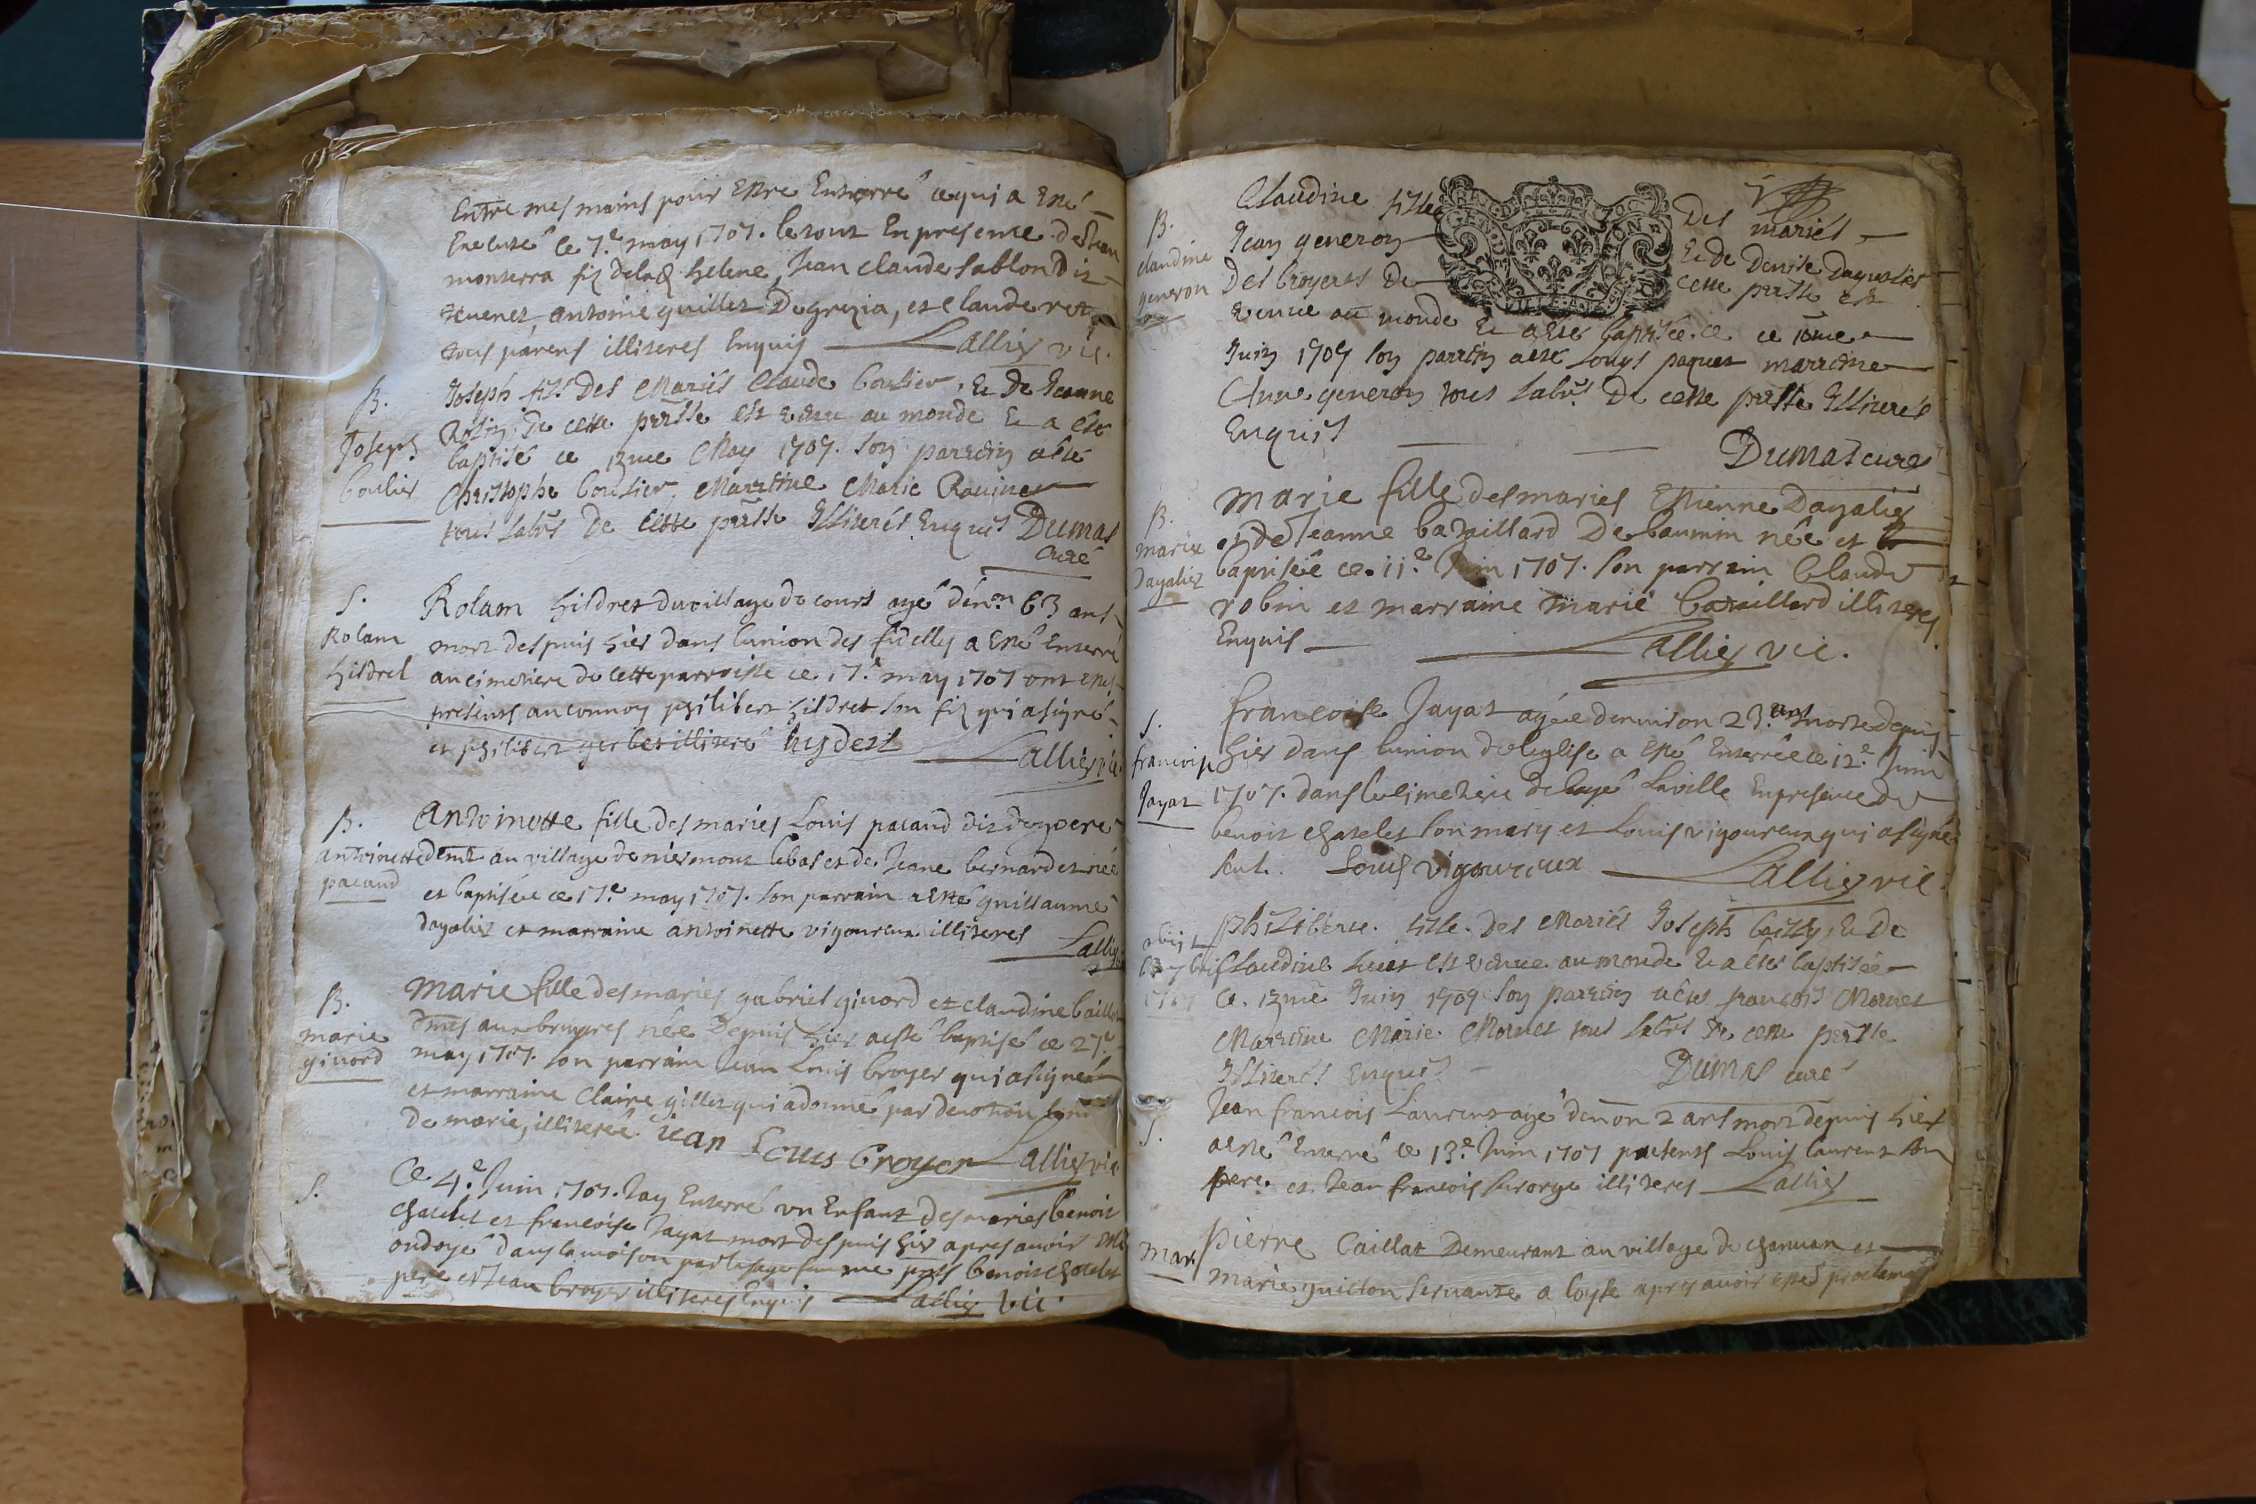 Entre mes mains pour Estre Enterré ce qui a Esté
Executé ce 7.e may 1707. le tout En presence de Jean
monterra fiz delad helene, Jean claude sablon dit
tevenet, antoine quillet De grezia, et claude
tous parens illiteres Enquis Lallier vic.
B.
Joseph
boulier
Joseph fils Des Mariés Claude boulier Et De Jeanne
Robin De cette prsse est venu au monde Et a esté
baptisé ce 12me May 1707. son parrein a esté
Christophe boulier Marreine Marie Ravinet
tous labrs De cette prsse Illiterés Enquis Dumas
curé
S.
Rolam
hildret
Rolam hildret du village de cours agé d'env.on 63 ans
mort despuis hier dans l'union des fidelles a Esté Enterré
au cimetiere de cette parroisse ce 17.e may 1707 ont estés
présents au convoy philibert hildret son fiz qui a signé
et philibert gerbet illiteré hyderet
Lallier vic.
B.
antoinette
pacaud
Antoinette fille des mariés Louis pacaud dit
demt au village de niermont le bas et de Jeane bernard et née
et baptisée ce 17.e may 1707. son parrain a Esté guillaume
dagalier et marraine antoinette vigoureux illiteres
Lallier
B.
marie
givord
Marie fille des mariés gabriel givord et claudine caillat
dmts aux bruyeres née Depuis hier a esté baptisé ce 27.e
may 1707. son parrain Jean Louis broyer qui a signé
et marraine Claire gillet qui a donné par devotion
de marie, illiterée Jean Louis broyer Lallier vic
S.
Ce 4.e Juin 1707. Jay Enterré un Enfant des mariés benoit
chatelet et francoise Jayat mort despuis hier apres avoir esté
ondoyé dans la maison par la sage femme pnts benoit chatelet
pere et Jean broyer illiteres Enquis Lallier vic.
B.
claudine
generon
Claudine fille Des mariés
Jean generon Et de Denise Dagallier
Des broyers De cette prsse est
venue au monde Et a esté baptisée ce 10me
Juin 1707 son parrein a esté Louys paquet marreine
Anne generon tous labrs De cette prsse Illiterés
Enquis
Dumas curé
B.
marie
Dagalier
Marie fille des mariés Estienne Dagalier
et de Jeanne bataillard De baumin née et
baptisée ce 11.e Juin 1707. son parrain Claude
robin et marraine marie bataillard illiteres
Enquis Lallier vic.
S.
francoise
Jayat
francoise Jayat agée denviron 23. ans morte depuis
hier dans l'union de leglise a esté Enterrée ce 12.e Juin
1707. dans le cimetiere de bagé Laville En presence de
benoit chatelet son mary et Louis vigoureux qui a signé
seul. Louis vigoureux Lallier vic
obijt
1707
Philiberte fille Des Mariés Joseph bailly Et De
Claudine huet est venue au monde Et a esté baptisée
Ce 12me Juin 1707 son parrein a esté francois Mornet
Marreine Marie Mornet tous labrs De cette prsse
Illiterés Enquis Dumas curé
S.
Jean francois Laurent agé denon 2 ans mort depuis hier
a esté Enterré ce 13.e Juin 1707 presents Louis Laurent son
pere et Jean francois surorge illiteres Lallier
Mar
Pierre Caillat Demeurant au village de chanvan et
Marie guitton servante a loyse apres avoir estés proclamés